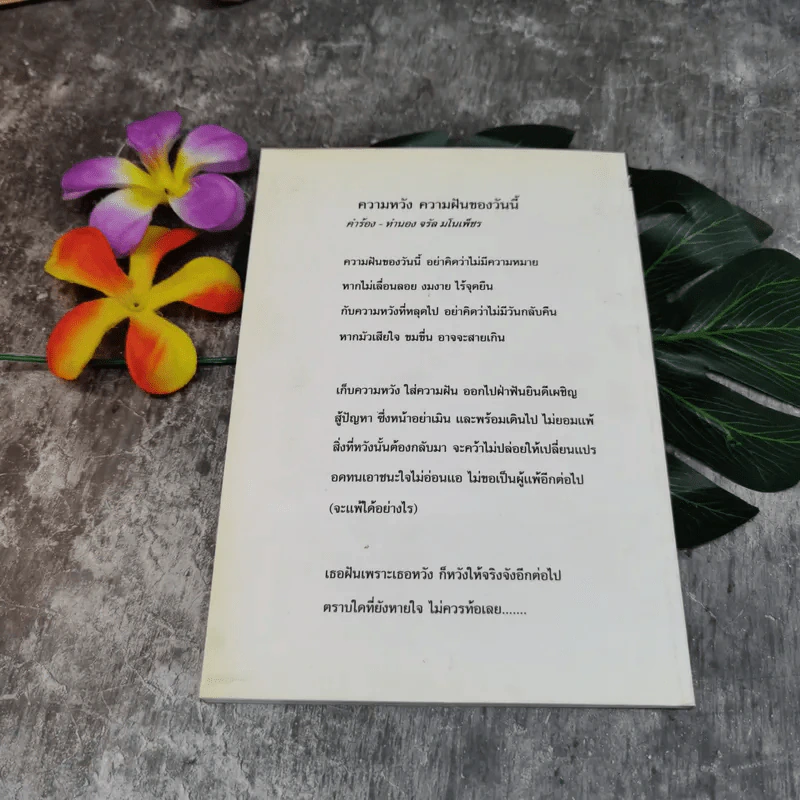 ความหวัง ความฝันของวันนี้
คำร้อง - ทำนอง จรัล มโนเพ็ชร
ความฝันของวันนี้ อย่าคิดว่าไม่มีความหมาย
หากไม่เลื่อนลอย งมงาย ไร้จุดยืน
กับความหวังที่หลุดไป อย่าคิดว่าไม่มีวันกลับคืน
หากมัวเสียใจ ขมขื่น อาจจะสายเกิน
เก็บความหวัง ใส่ความฝัน ออกไปฝ่าฟันยินดีเผชิญ
สู้ปัญหา ซึ่งหน้าอย่าเมิน และพร้อมเดินไป ไม่ยอมแพ้
สิ่งที่หวังนั้นต้องกลับมา จะคว้าไม่ปล่อยให้เปลี่ยนแปร
อดทนเอาชนะใจไม่อ่อนแอ ไม่ขอเป็นผู้แพ้อีกต่อไป
(จะแพ้ได้อย่างไร)
เธอฝันเพราะเธอหวัง ก็หวังให้จริงจังอีกต่อไป
ตราบใดที่ยังหายใจ ไม่ควรท้อเลย.......